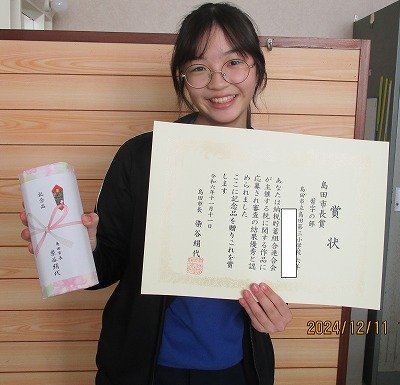 賞状
島田市長賞
習字の部
島田市立島田第三小学校六年
あなたは納税貯蓄組合連合会
が主催する税に関する作品に
応募され審査の結果優秀と認
められました
ここに記念品を贈りこれを賞
します
令和六年十一月十一日
島田市長 染谷絹代
記念品
島田市長
染谷絹代
2024/12/11